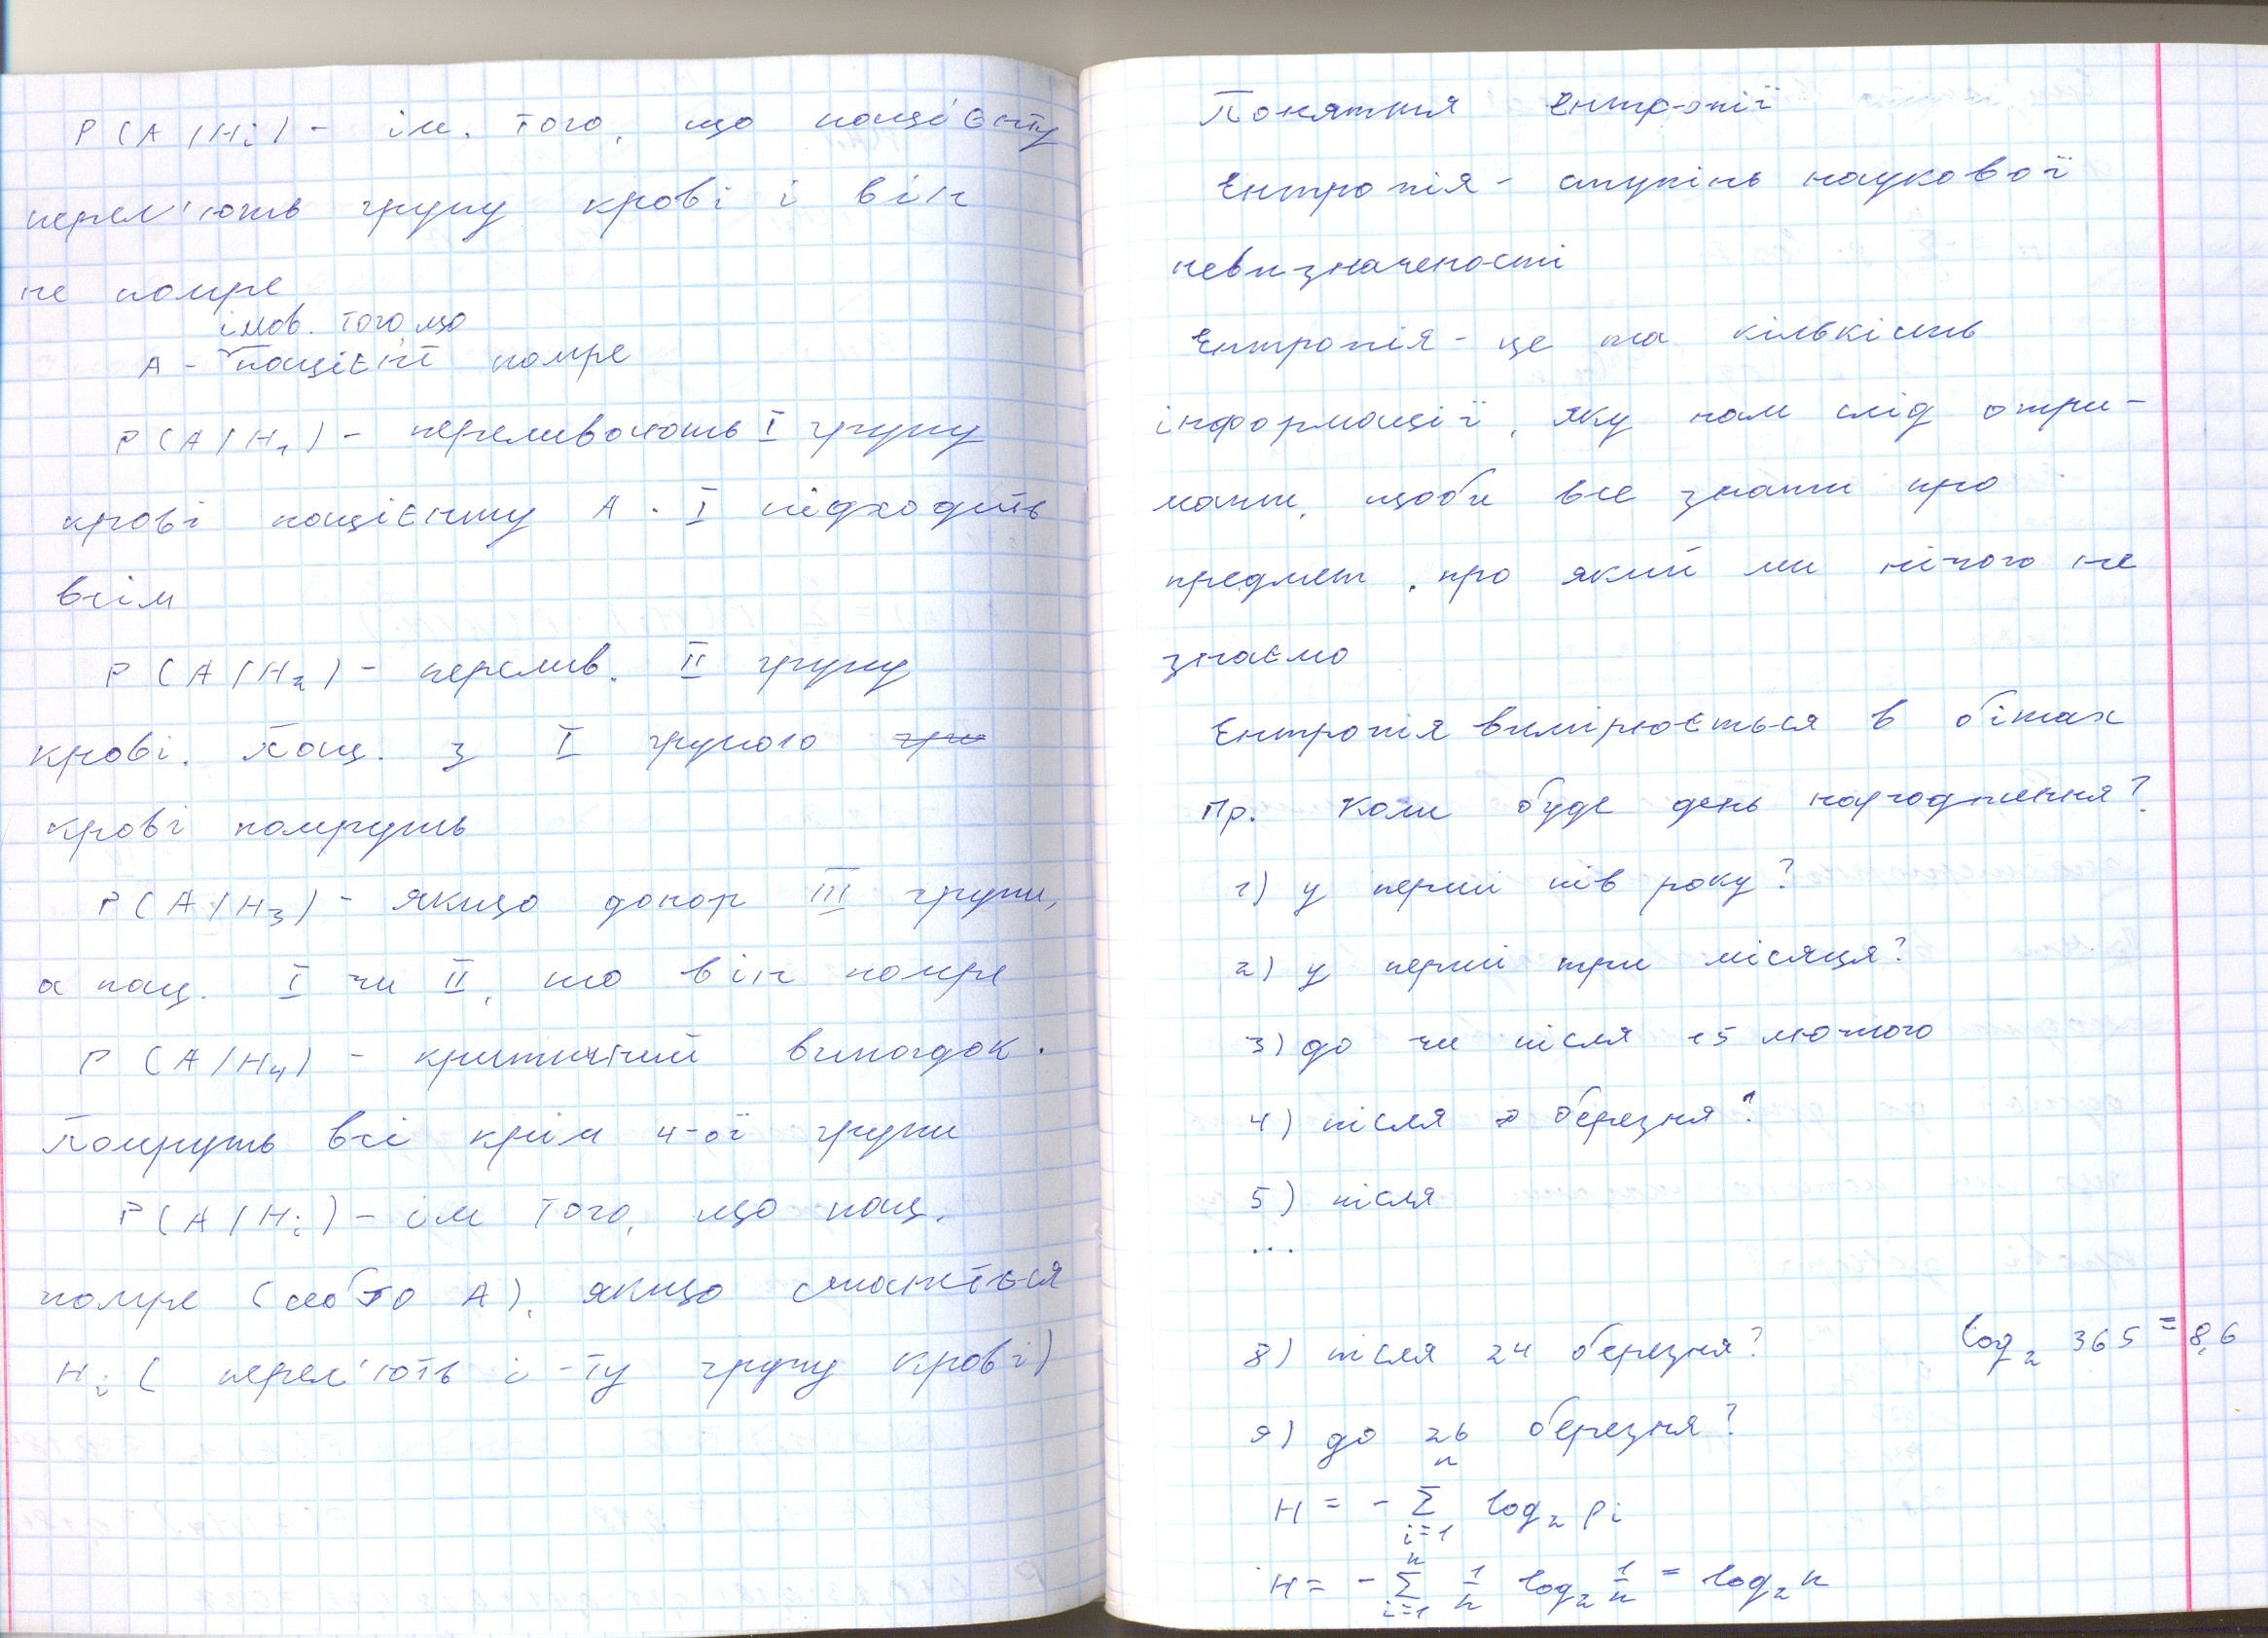 P(A/Hi) - ім. того, що пацієнту
перел'ють групу крові і він
не помре
імов. того, що
A - пацієнт помре
P(A/H1) - переливають I групу
крові пацієнту A. I підходить
всім
P(A/H2) - перелив. II групу
крові. Пац. з I групою гру
крові помруть
P(A/H3) - якщо донор III групи,
а пац. I чи II, то він помре
P(A/H4) - критичний випадок.
Помруть всі крім 4-ої групи
P(A/Hi) - ім того, що пац.
помре (себто A), якщо станеться
Hi ( перел'ють і-ту групу крові)
Поняття ентропії
Ентропія - ступінь наукової
невизначеності
Ентропія - це та кількість
інформації, яку нам слід отри-
мати, щоби все знати про
предмет, про який ми нічого не
знаємо
Ентропія вимірюється в бітах
Пр. Коли буде день народження?
1) у перші пів року?
2) у перші три місяця?
3) до чи після 15 лютого
4) після березня?
5) після
...
8) після 24 березня? log2 365 = 8,6
9) до 26 березня?
H = - Σ(i=1..n) log2 pi
H = - Σ(i=1..n) 1/n log2 1/n = log2 n